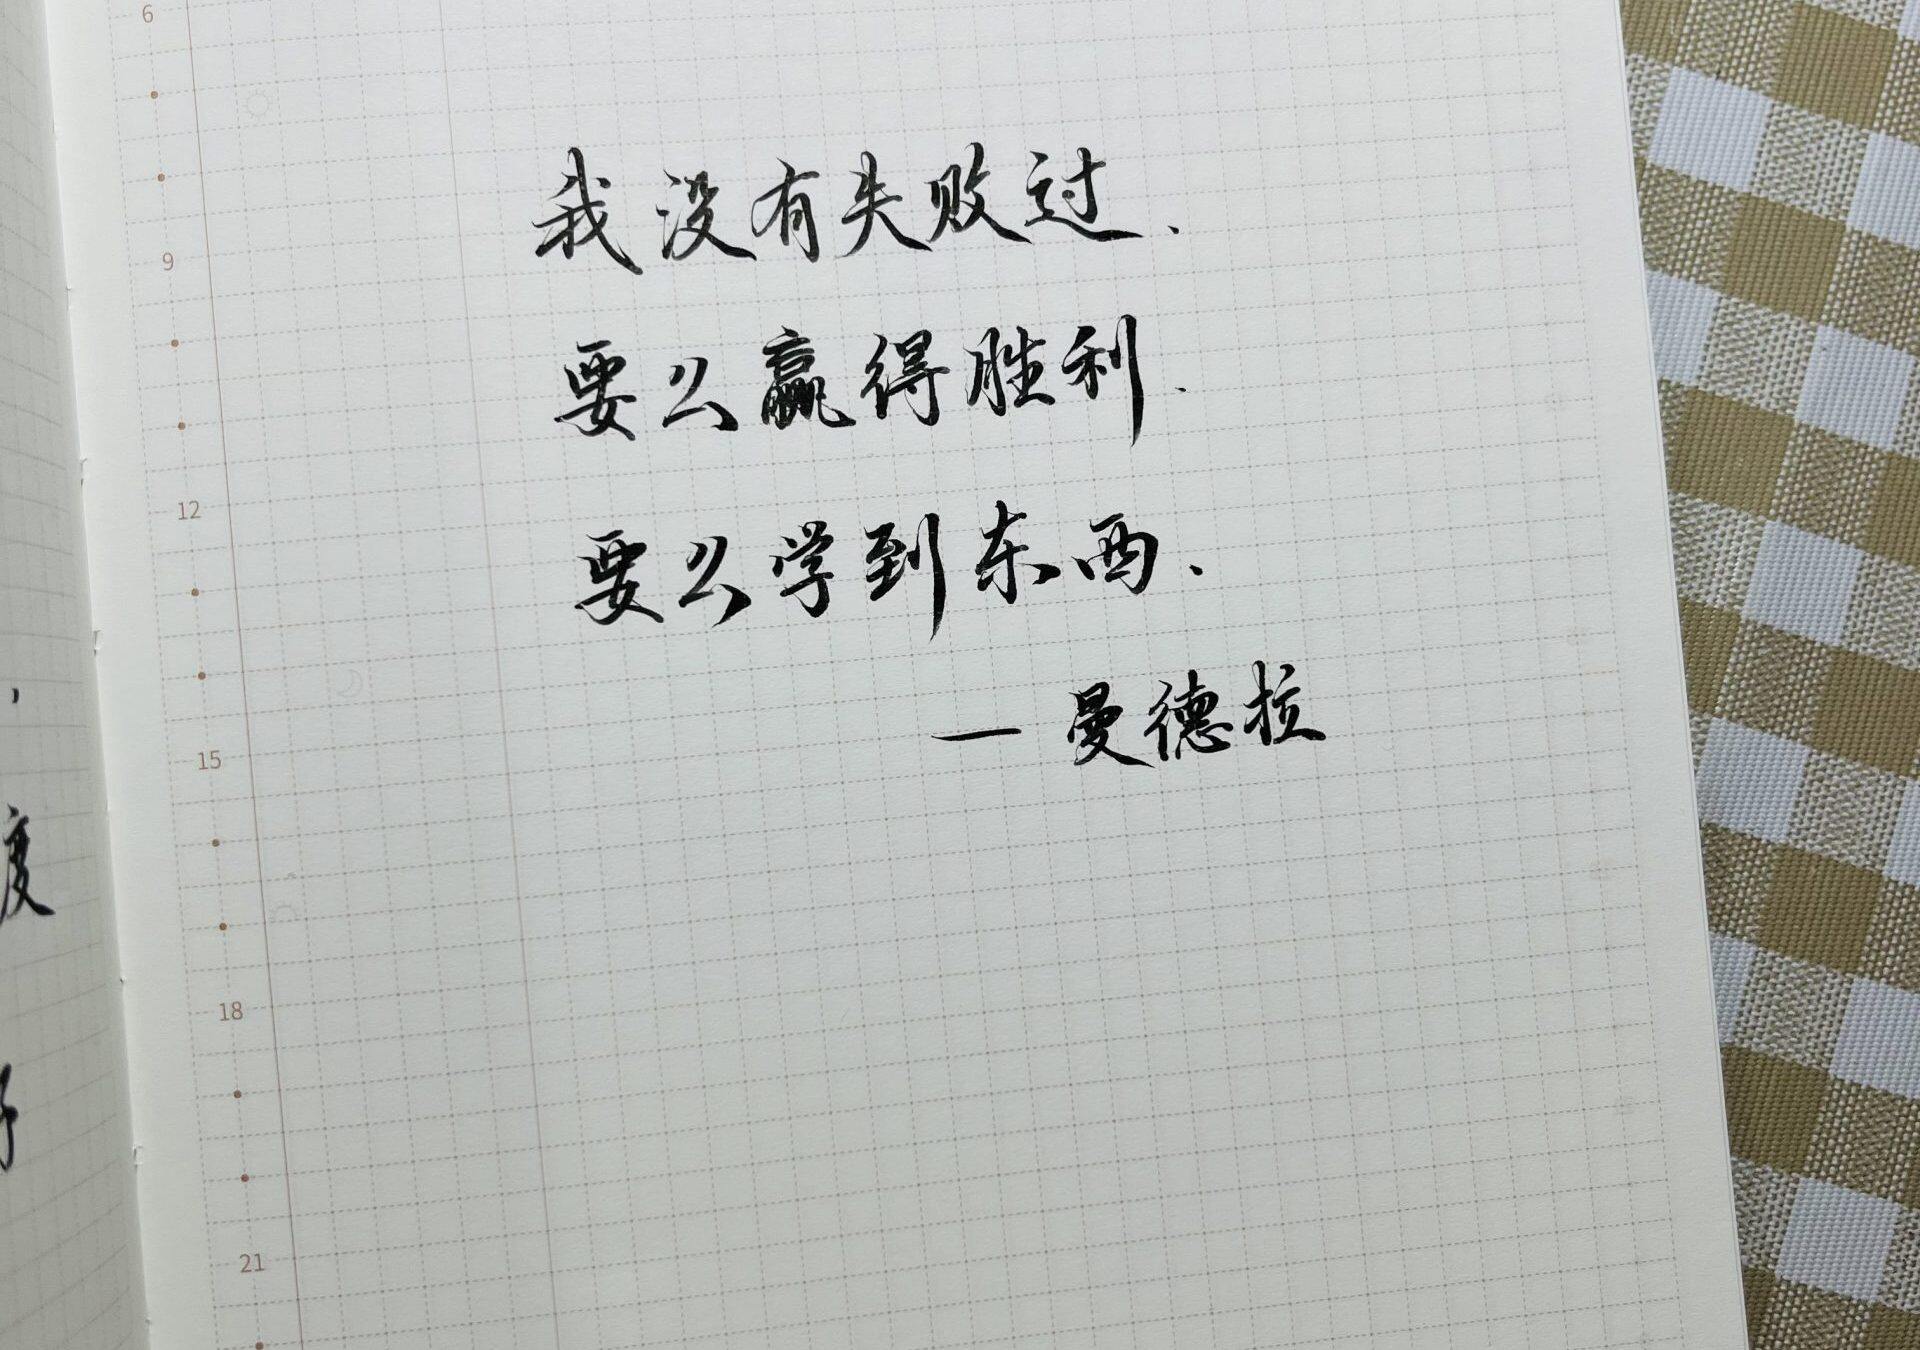 我没有失败过.
要么赢得胜利.
要么学到东西.
— 曼德拉
6
9
12
15
18
21
度